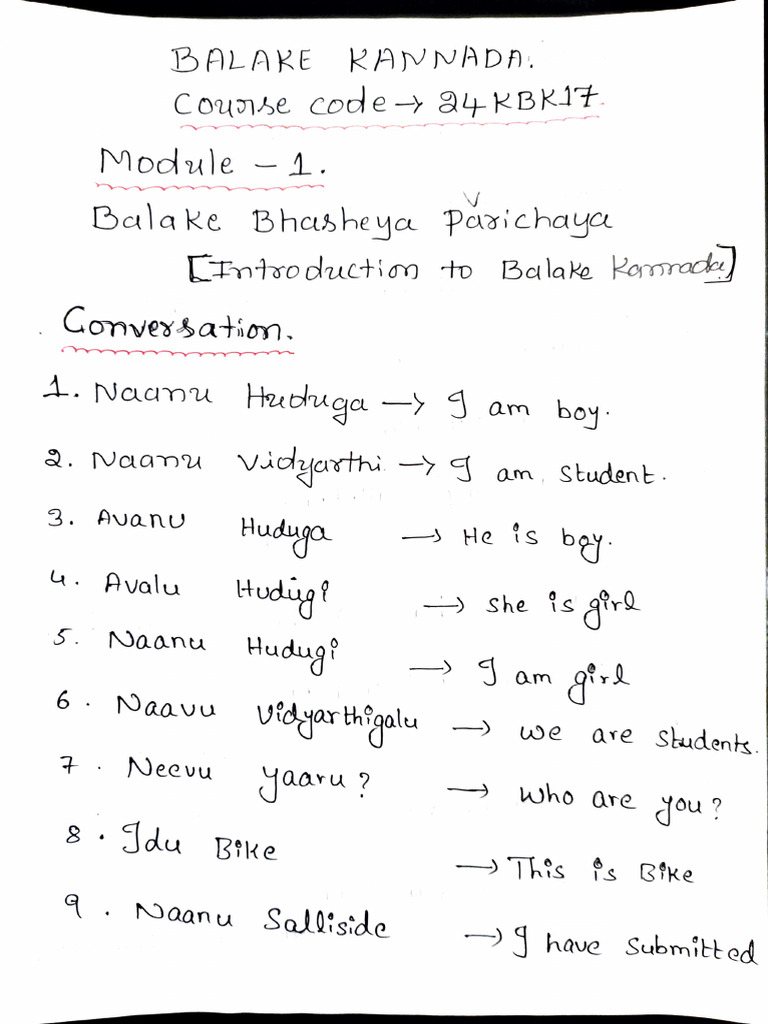 BALAKE KANNADA.
Course code → 24KBK17.
Module - 1.
Balake Bhasheya Parichaya
[Introduction to Balake Kannada]
Conversation.
1. Naanu Huduga → I am boy.
2. Naanu Vidyarthi → I am student.
3. Avanu Huduga → He is boy.
4. Avalu Hudugi → she is girl
5. Naanu Hudugi → I am girl
6. Naavu Vidyarthigalu → we are students.
7. Neevu yaaru? → who are you?
8. Idu Bike → This is Bike
9. Naanu Salliside → I have submitted